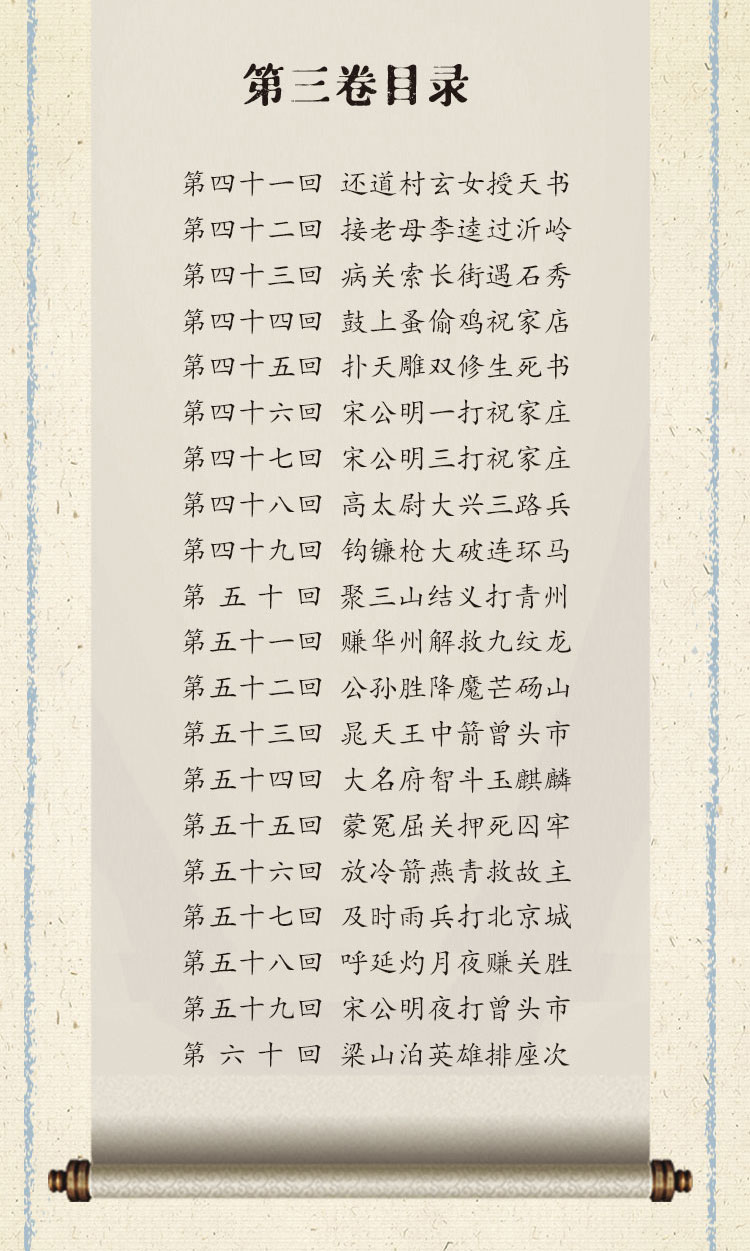 第三卷目录
第四十一回 还道村玄女授天书
第四十二回 接老母李逵过沂岭
第四十三回 病关索长街遇石秀
第四十四回 鼓上蚤偷鸡祝家店
第四十五回 扑天雕双修生死书
第四十六回 宋公明一打祝家庄
第四十七回 宋公明三打祝家庄
第四十八回 高太尉大兴三路兵
第四十九回 钩镰枪大破连环马
第五十回 聚三山结义打青州
第五十一回 赚华州解救九纹龙
第五十二回 公孙胜降魔芒砀山
第五十三回 晁天王中箭曾头市
第五十四回 大名府智斗玉麒麟
第五十五回 蒙冤屈关押死囚牢
第五十六回 放冷箭燕青救故主
第五十七回 及时雨兵打北京城
第五十八回 呼延灼月夜赚关胜
第五十九回 宋公明夜打曾头市
第六十回 梁山泊英雄排座次